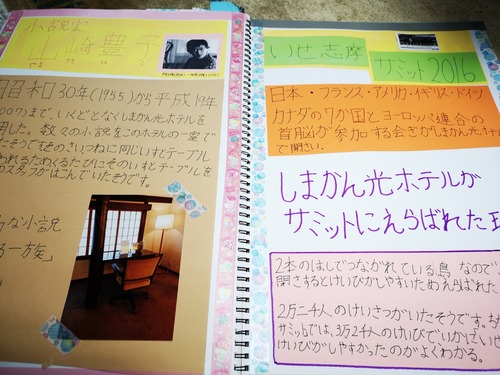 小説家
山崎豊子
やま さき とよ こ
昭和30年(1955)から平成19年
007)まで、いくどとなくしまかん光ホテルを
用した。数々の小説をこのホテルの一室で
たそうですそのさいつねに同じいすとテーブル
われるためくるたびにそのいすとテーブルを
のスタッフがはこんでいたそうです。
な小説
る一族』
いせ志摩
サミット2016
日本・フランス・アメリカ・イギリス・ドイツ
カナダの7か国とヨーロッパ連合の
首脳が参加する会ぎがしまかん光ホテル
で開さい。
しまかん光ホテルが
サミットにえらばれた理
2本のはしでつながれている島なので
開さするとけいびがしやすいためえらばれた
2万二千人のけいさつがいたそうです。
サミットでは、3万2千人のけいびで
けいびがしやすかったのがよくわかる。